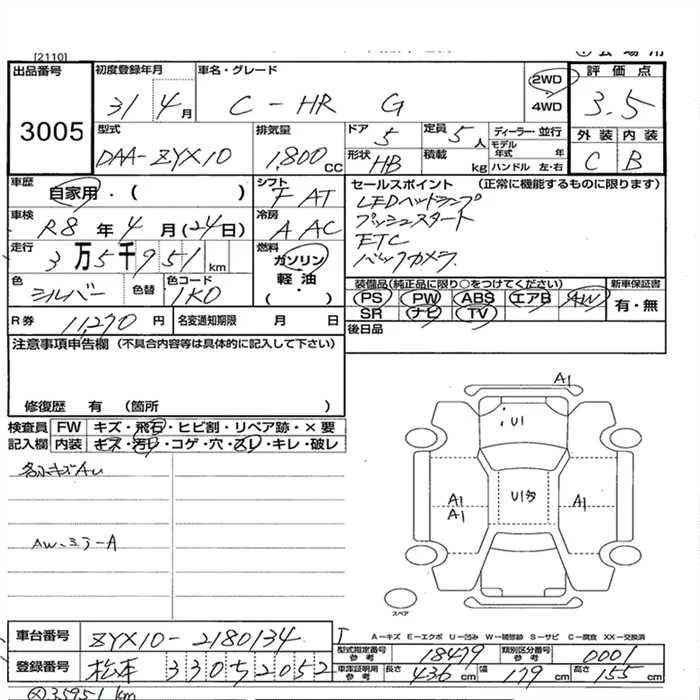 [2110]
出品番号
3005
初度登録年月
31 4月
車名・グレード
C-HR G
2WD
4WD
評価点
3.5
外装 内装
C B
型式
DAA-ZYX10
排気量
1,800cc
ドア
5
定員
5人
ディーラー・並行
モデル年式 年
形状
HB
積載
kg
ハンドル 左・右
車歴
自家用・( )
シフト
F AT
セールスポイント (正常に機能するものに限ります)
LEDヘッドランプ
プッシュスタート
ETC
バックカメラ
車検
R8年4月(24日)
冷房
A AC
走行
3万5千951km
燃料
ガソリン
軽油
・( )
色
シルバー
色替
色コード
1K0
装備品(純正品に限り○をつけてください)
PS PW ABS エアB AW
SR ナビ TV
新車保証書
有・無
R券 11,270円
名変通知期限 月 日
後日品
注意事項申告欄 (不具合内容等は具体的に記入して下さい)
修復歴 有 (箇所 )
検査員 FW キズ・飛石・ヒビ割・リペア跡・×要
記入欄 内装 キズ・汚れ・コゲ・穴・スレ・キレ・破レ
AW.ミラーA
A1
U1
A1
A1
A1
スペア
A-キズ E-エクボ U-凹み W-補修跡 S-サビ C-腐食 XX-交換済
車台番号
ZYX10-2180134
登録番号
松本 330 2052
型式指定番号 参考
18479
類別区分番号 参考
0001
車庫証明用 参考
長さ 436cm 幅 179cm 高さ 155cm
35951km